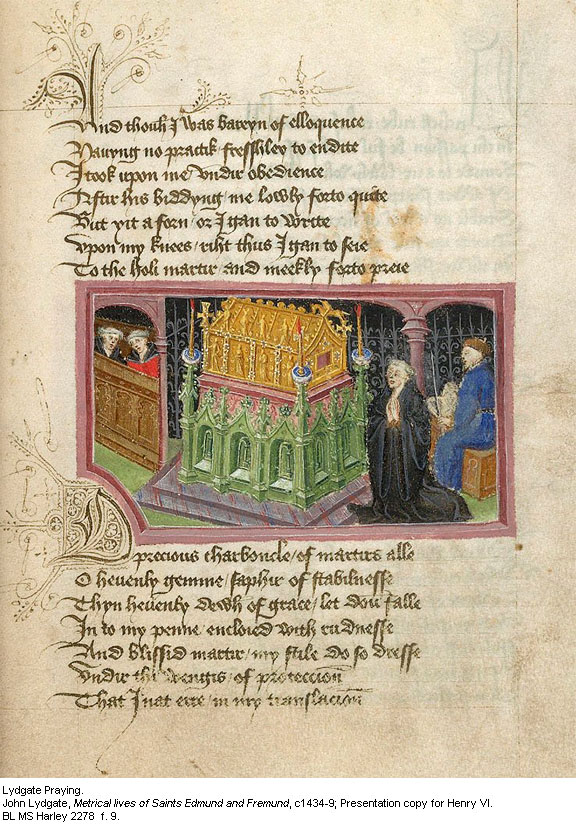 And thouh I was bareyn of elloquence
Havyng no practik fresshley to endite
I took upon me undir obedience
Aftir his biddyng me lowly forto quite
But yit a forn or I gan to write
Upon my knees riht thus I gan to seie
To the holi martir and meekly forto preie
O precious charboncle of martirs alle
O hevenly gemme saphir of stabilnesse
Thyn hevenly dewh of grace let doun falle
In to my penne encloied with rudnesse
And blissid martir my stile do so dresse
Undir thi wengis of proteccion
That I nat erre in my translacion
Lydgate Praying.
John Lydgate, Metrical lives of Saints Edmund and Fremund, c1434-9; Presentation copy for Henry VI.
BL MS Harley 2278 f. 9.